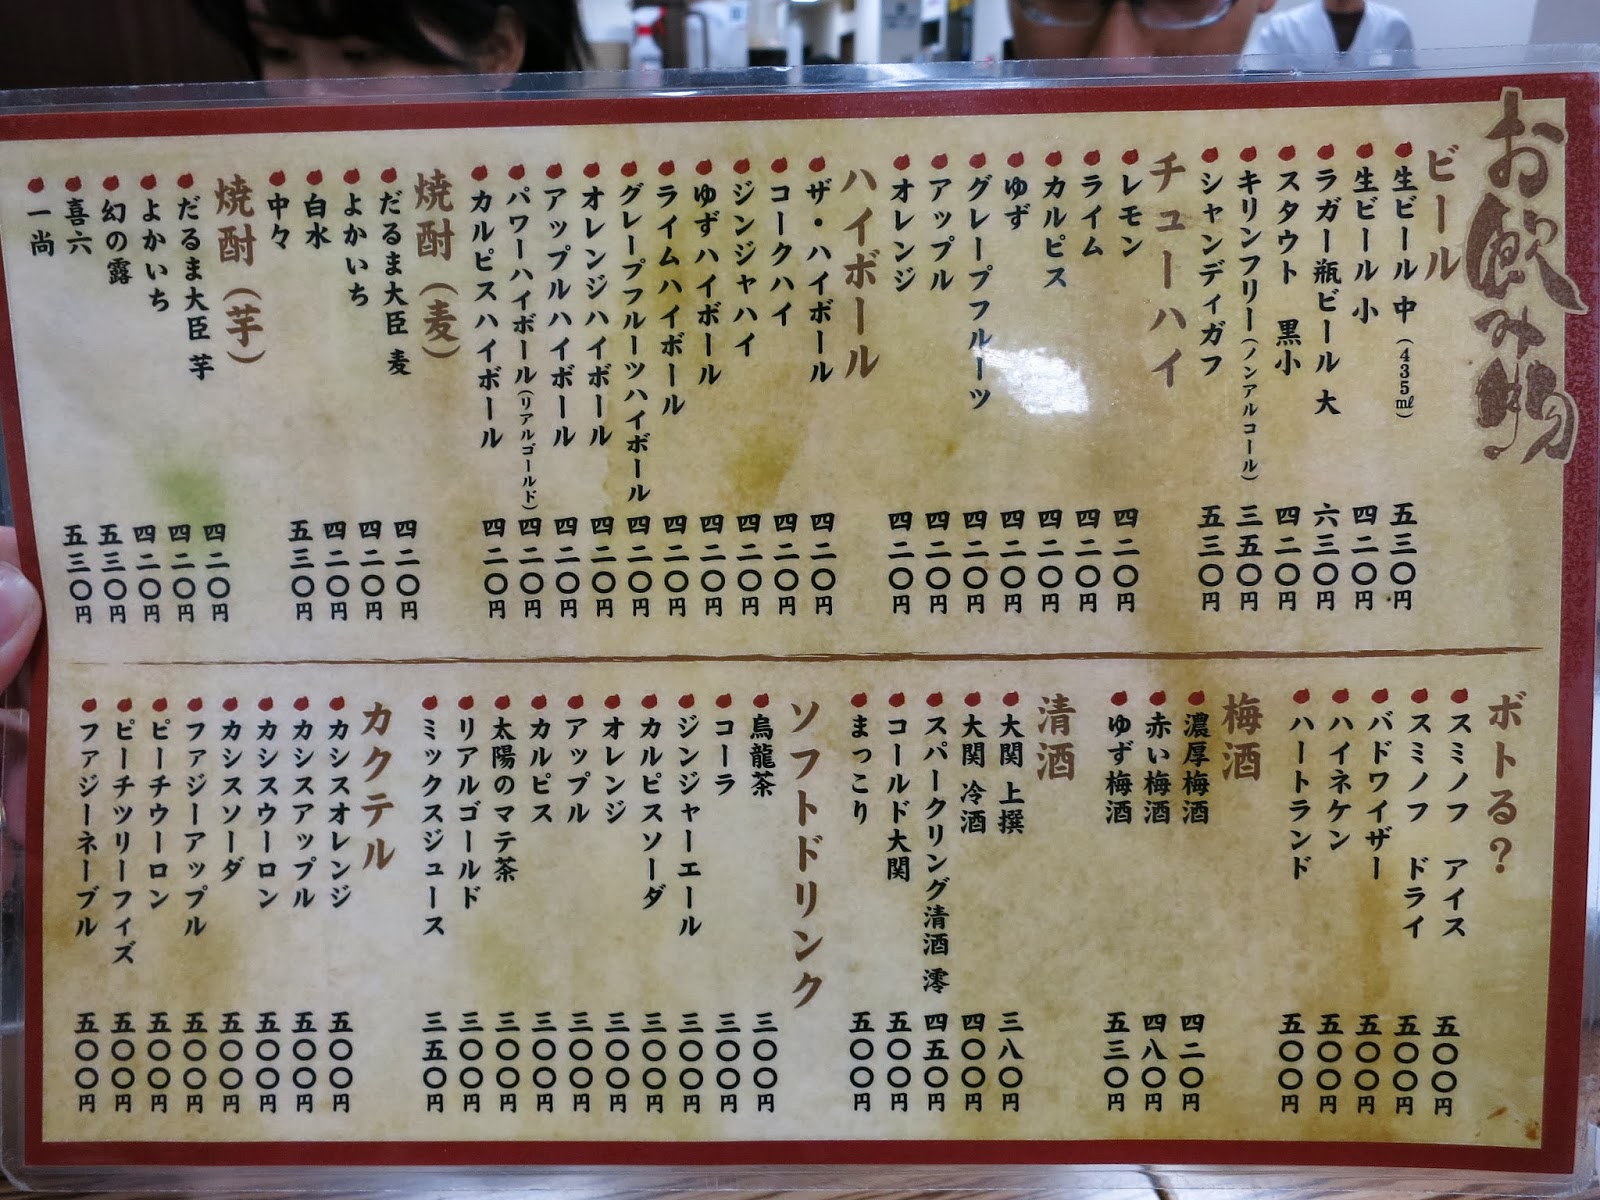 お飲み物
ビール
生ビール 中(435㎖) 五三〇円
生ビール 小 四二〇円
ラガー瓶ビール 大 六三〇円
スタウト 黒小 四二〇円
キリンフリー(ノンアルコール) 三五〇円
シャンディガフ 五三〇円
チューハイ
レモン 四二〇円
ライム 四二〇円
カルピス 四二〇円
ゆず 四二〇円
グレープフルーツ 四二〇円
アップル 四二〇円
オレンジ 四二〇円
ハイボール
ザ・ハイボール 四二〇円
コークハイ 四二〇円
ジンジャハイ 四二〇円
ゆずハイボール 四二〇円
ライムハイボール 四二〇円
グレープフルーツハイボール 四二〇円
オレンジハイボール 四二〇円
アップルハイボール 四二〇円
パワーハイボール(リアルゴールド) 四二〇円
カルピスハイボール 四二〇円
焼酎(麦)
だるま大臣 麦 四二〇円
よかいち 四二〇円
白水 四二〇円
中々 五三〇円
焼酎(芋)
だるま大臣 芋 四二〇円
よかいち 四二〇円
幻の露 四二〇円
喜六 五三〇円
一尚 五三〇円
ボトる?
スミノフ アイス 五〇〇円
スミノフ ドライ 五〇〇円
バドワイザー 五〇〇円
ハイネケン 五〇〇円
ハートランド 五〇〇円
梅酒
濃厚梅酒 四二〇円
赤い梅酒 四八〇円
ゆず梅酒 五三〇円
清酒
大関 上撰 三八〇円
大関 冷酒 四〇〇円
スパークリング清酒 澪 四五〇円
コールド大関 五〇〇円
まっこり 五〇〇円
ソフトドリンク
烏龍茶 三〇〇円
コーラ 三〇〇円
ジンジャーエール 三〇〇円
カルピスソーダ 三〇〇円
オレンジ 三〇〇円
アップル 三〇〇円
カルピス 三〇〇円
太陽のマテ茶 三〇〇円
リアルゴールド 三〇〇円
ミックスジュース 三五〇円
カクテル
カシスオレンジ 五〇〇円
カシスアップル 五〇〇円
カシスウーロン 五〇〇円
カシスソーダ 五〇〇円
ファジーアップル 五〇〇円
ピーチウーロン 五〇〇円
ピーチツリーフィズ 五〇〇円
ファジーネーブル 五〇〇円